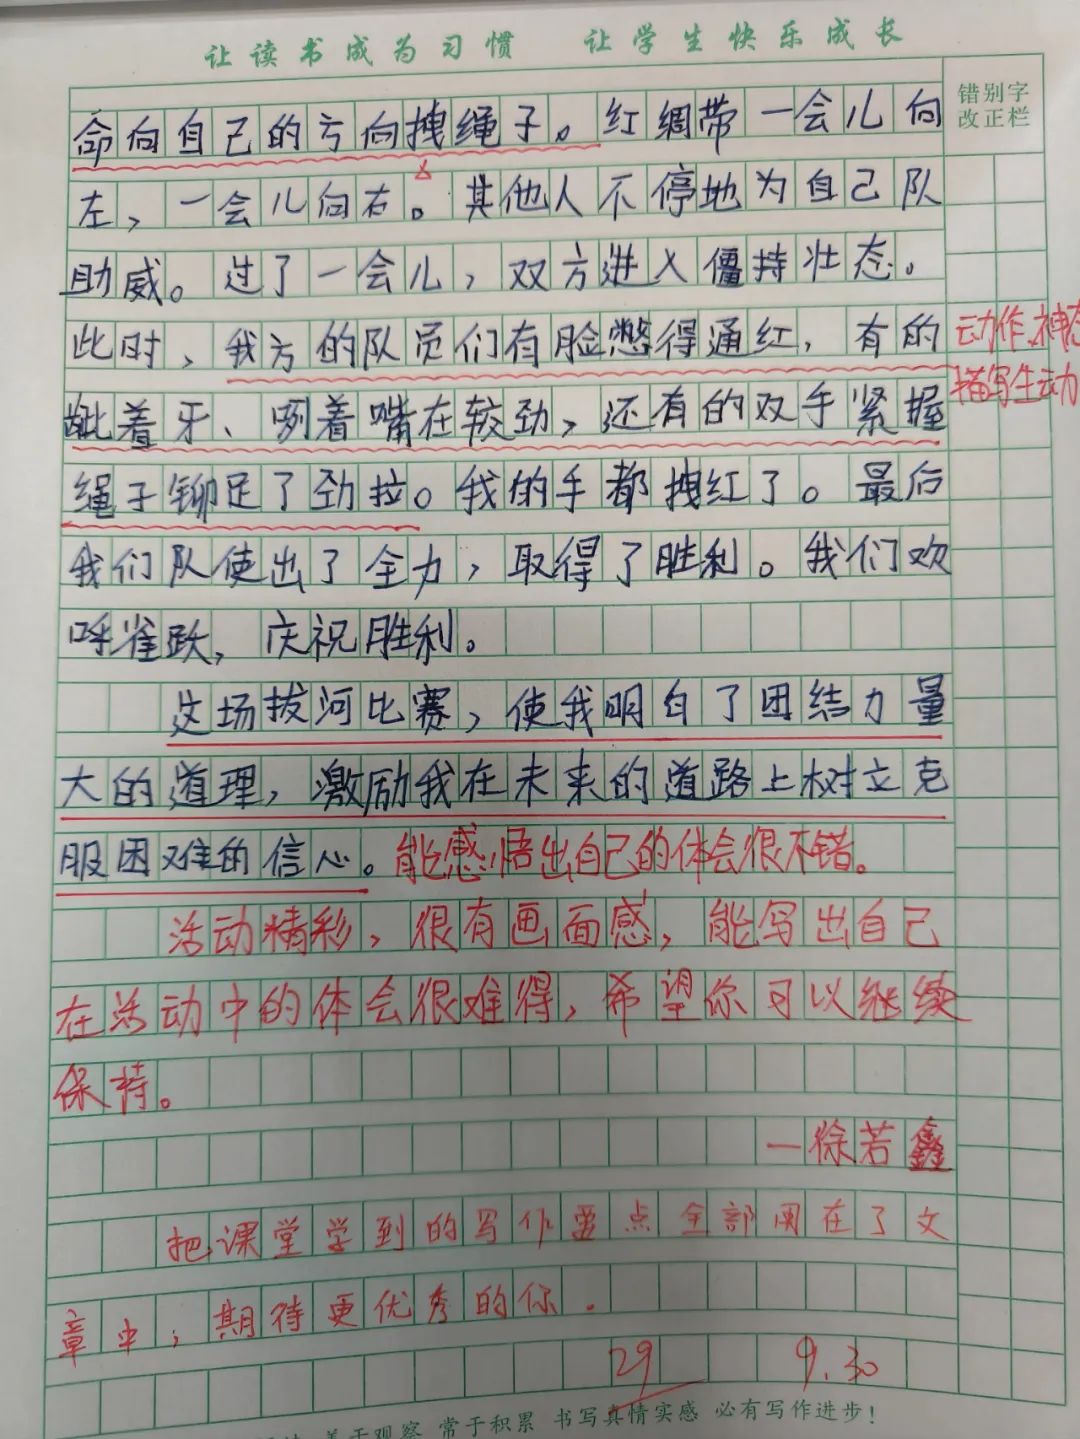 让读书成为习惯 让学生快乐成长
错别字
改正栏
命向自己的亏向拽绳子。红绸带一会儿向
左，一会儿向右。其他人不停地为自己队
助威。过了一会儿，双方进入僵持壮态。
此时，我方的队员们有脸憋得通红，有的
动作、神态
描写生动
龇着牙、咧着嘴在较劲，还有的双手紧握
绳子铆足了劲拉。我的手都拽红了。最后
我们队使出了全力，取得了胜利。我们欢
呼雀跃，庆祝胜利。
这场拔河比赛，使我明白了团结力量
大的道理，激励我在未来的道路上树立克
服困难的信心。能感悟出自己的体会很不错。
活动精彩，很有画面感，能写出自己
在活动中的体会很难得，希望你可以继续
保持。
—徐若鑫
把课堂学到的写作要点全部用在了文
章中，期待更优秀的你.
29 9.30
善于观察 常于积累 书写真情实感 必有写作进步！